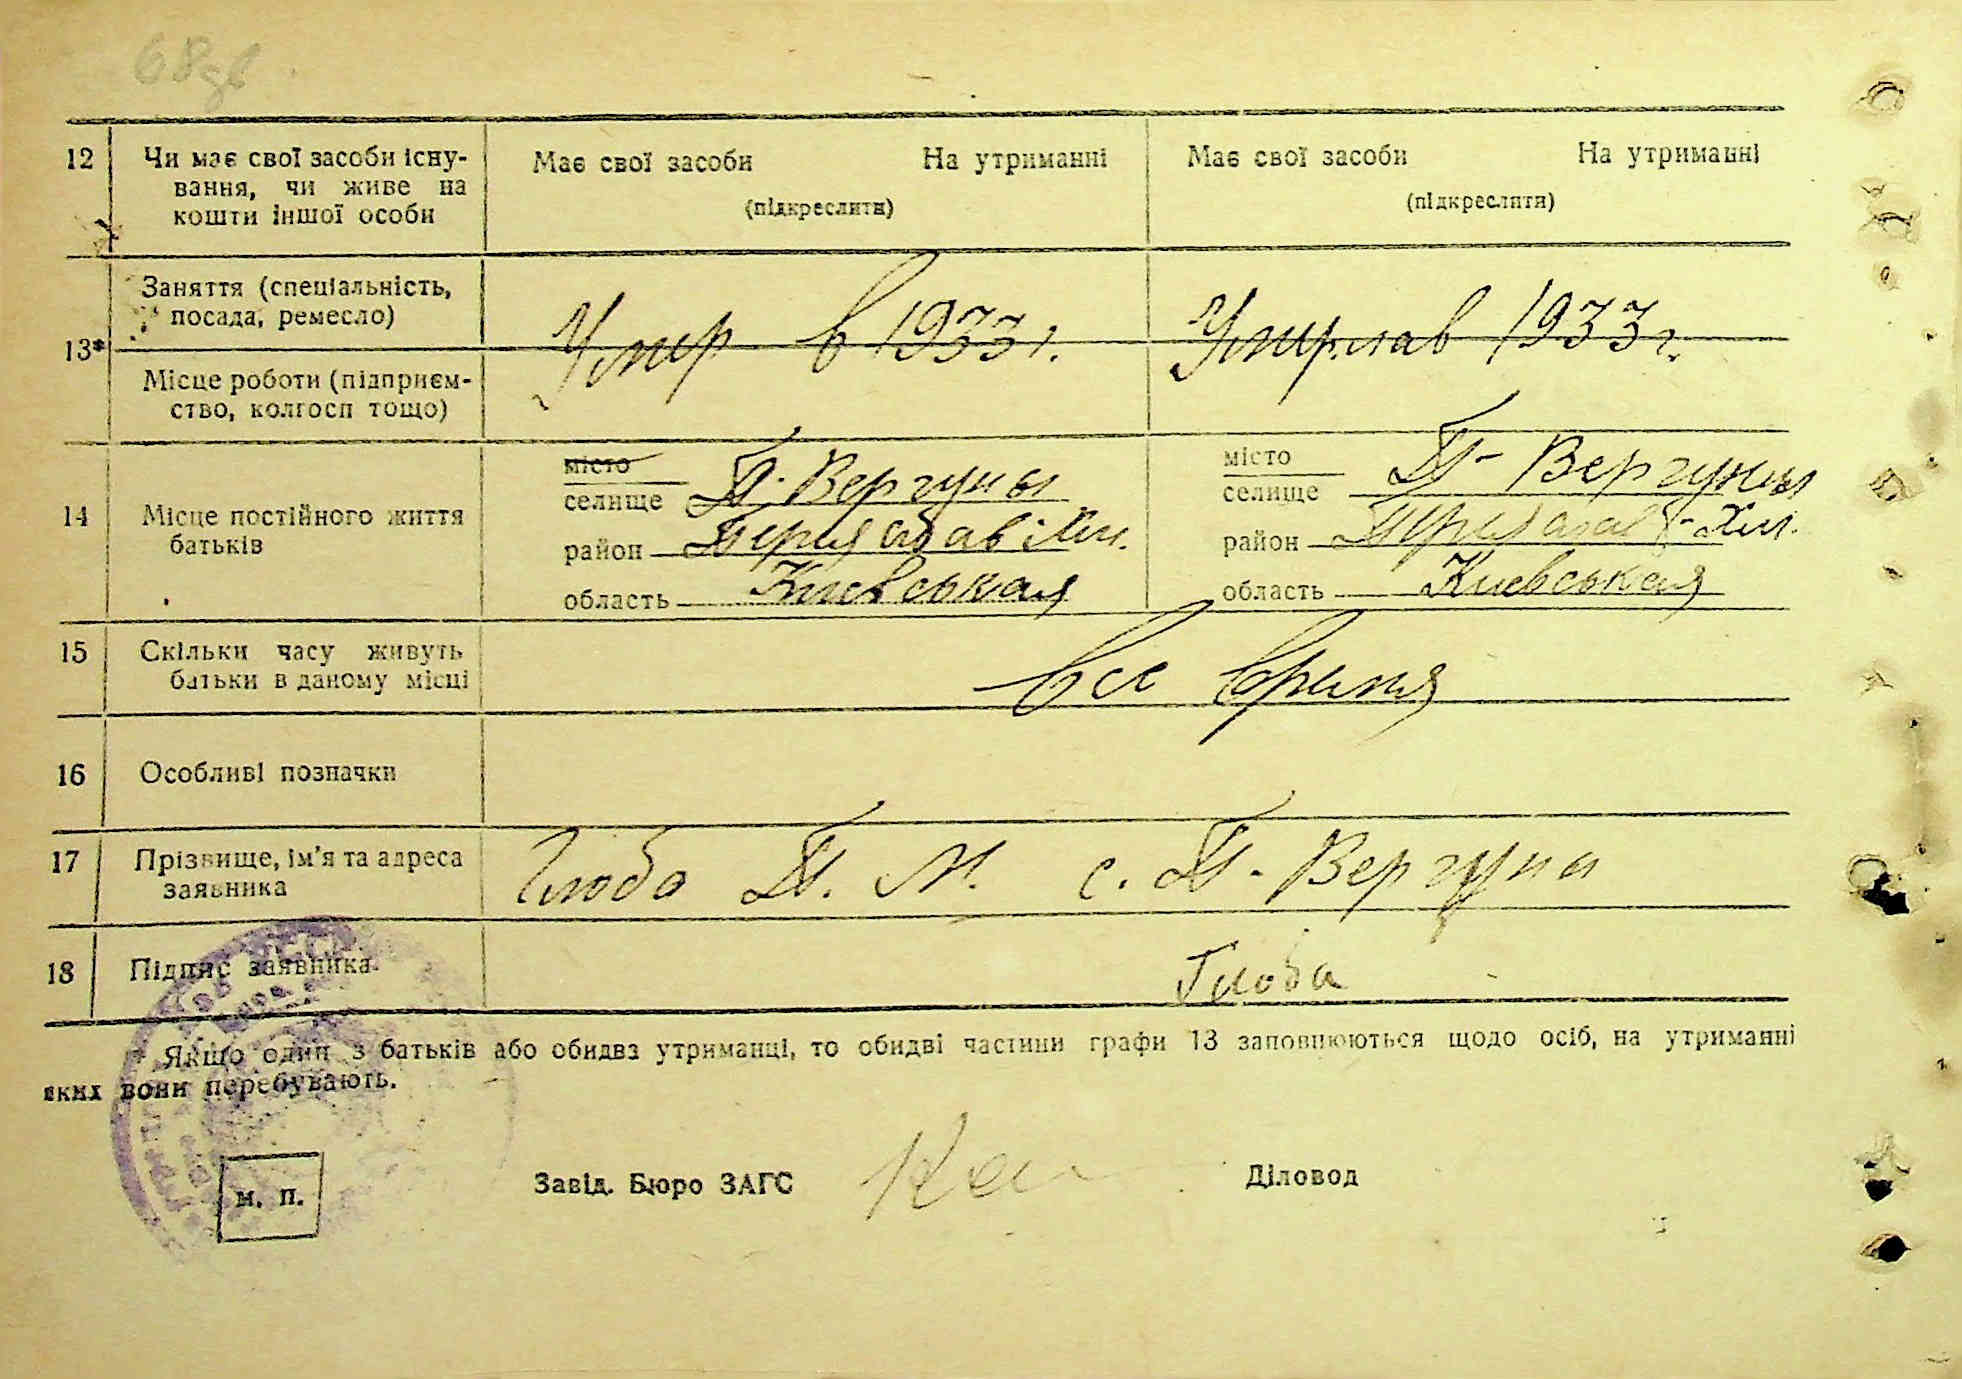 68зв
12 Чи має свої засоби існу- Має свої засоби На утриманні Має свої засоби На утриманні
вання, чи живе на (підкреслити) (підкреслити)
кошти іншої особи
13* Заняття (спеціальність,
посада, ремесло)
Умер в 1933 г. Умерла в 1933 г.
Місце роботи (підприєм-
ство, колгосп тощо)
14 Місце постійного життя
батьків
місто
селище П-Вергуны
район Переяслав-Хм.
область Киевськая
місто
селище П-Вергуны
район Переяслав-Хм.
область Киевськая
15 Скільки часу живуть
батьки в даному місці
все время
16 Особливі позначки
17 Прізвище, ім'я та адреса
заявника
Глоба П. М. с. П-Вергуны
18 Підпис заявника
Глоба
* Якщо один з батьків або обидва утриманці, то обидві частини графи 13 заповнюються щодо осіб, на утриманні
яких вони перебувають.
м. п.
Завід. Бюро ЗАГС Діловод